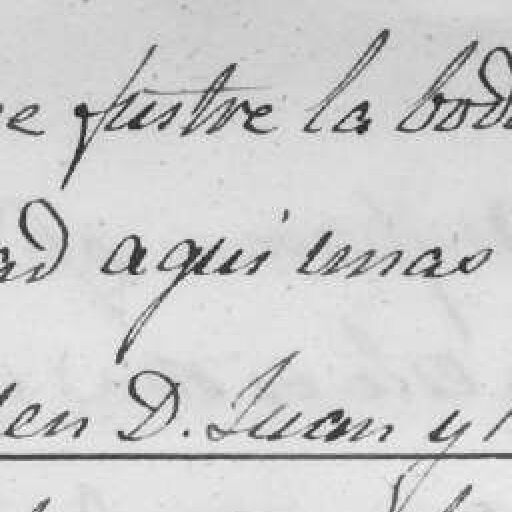 se fustre la bod
ad aqui unas
en D. Juan y